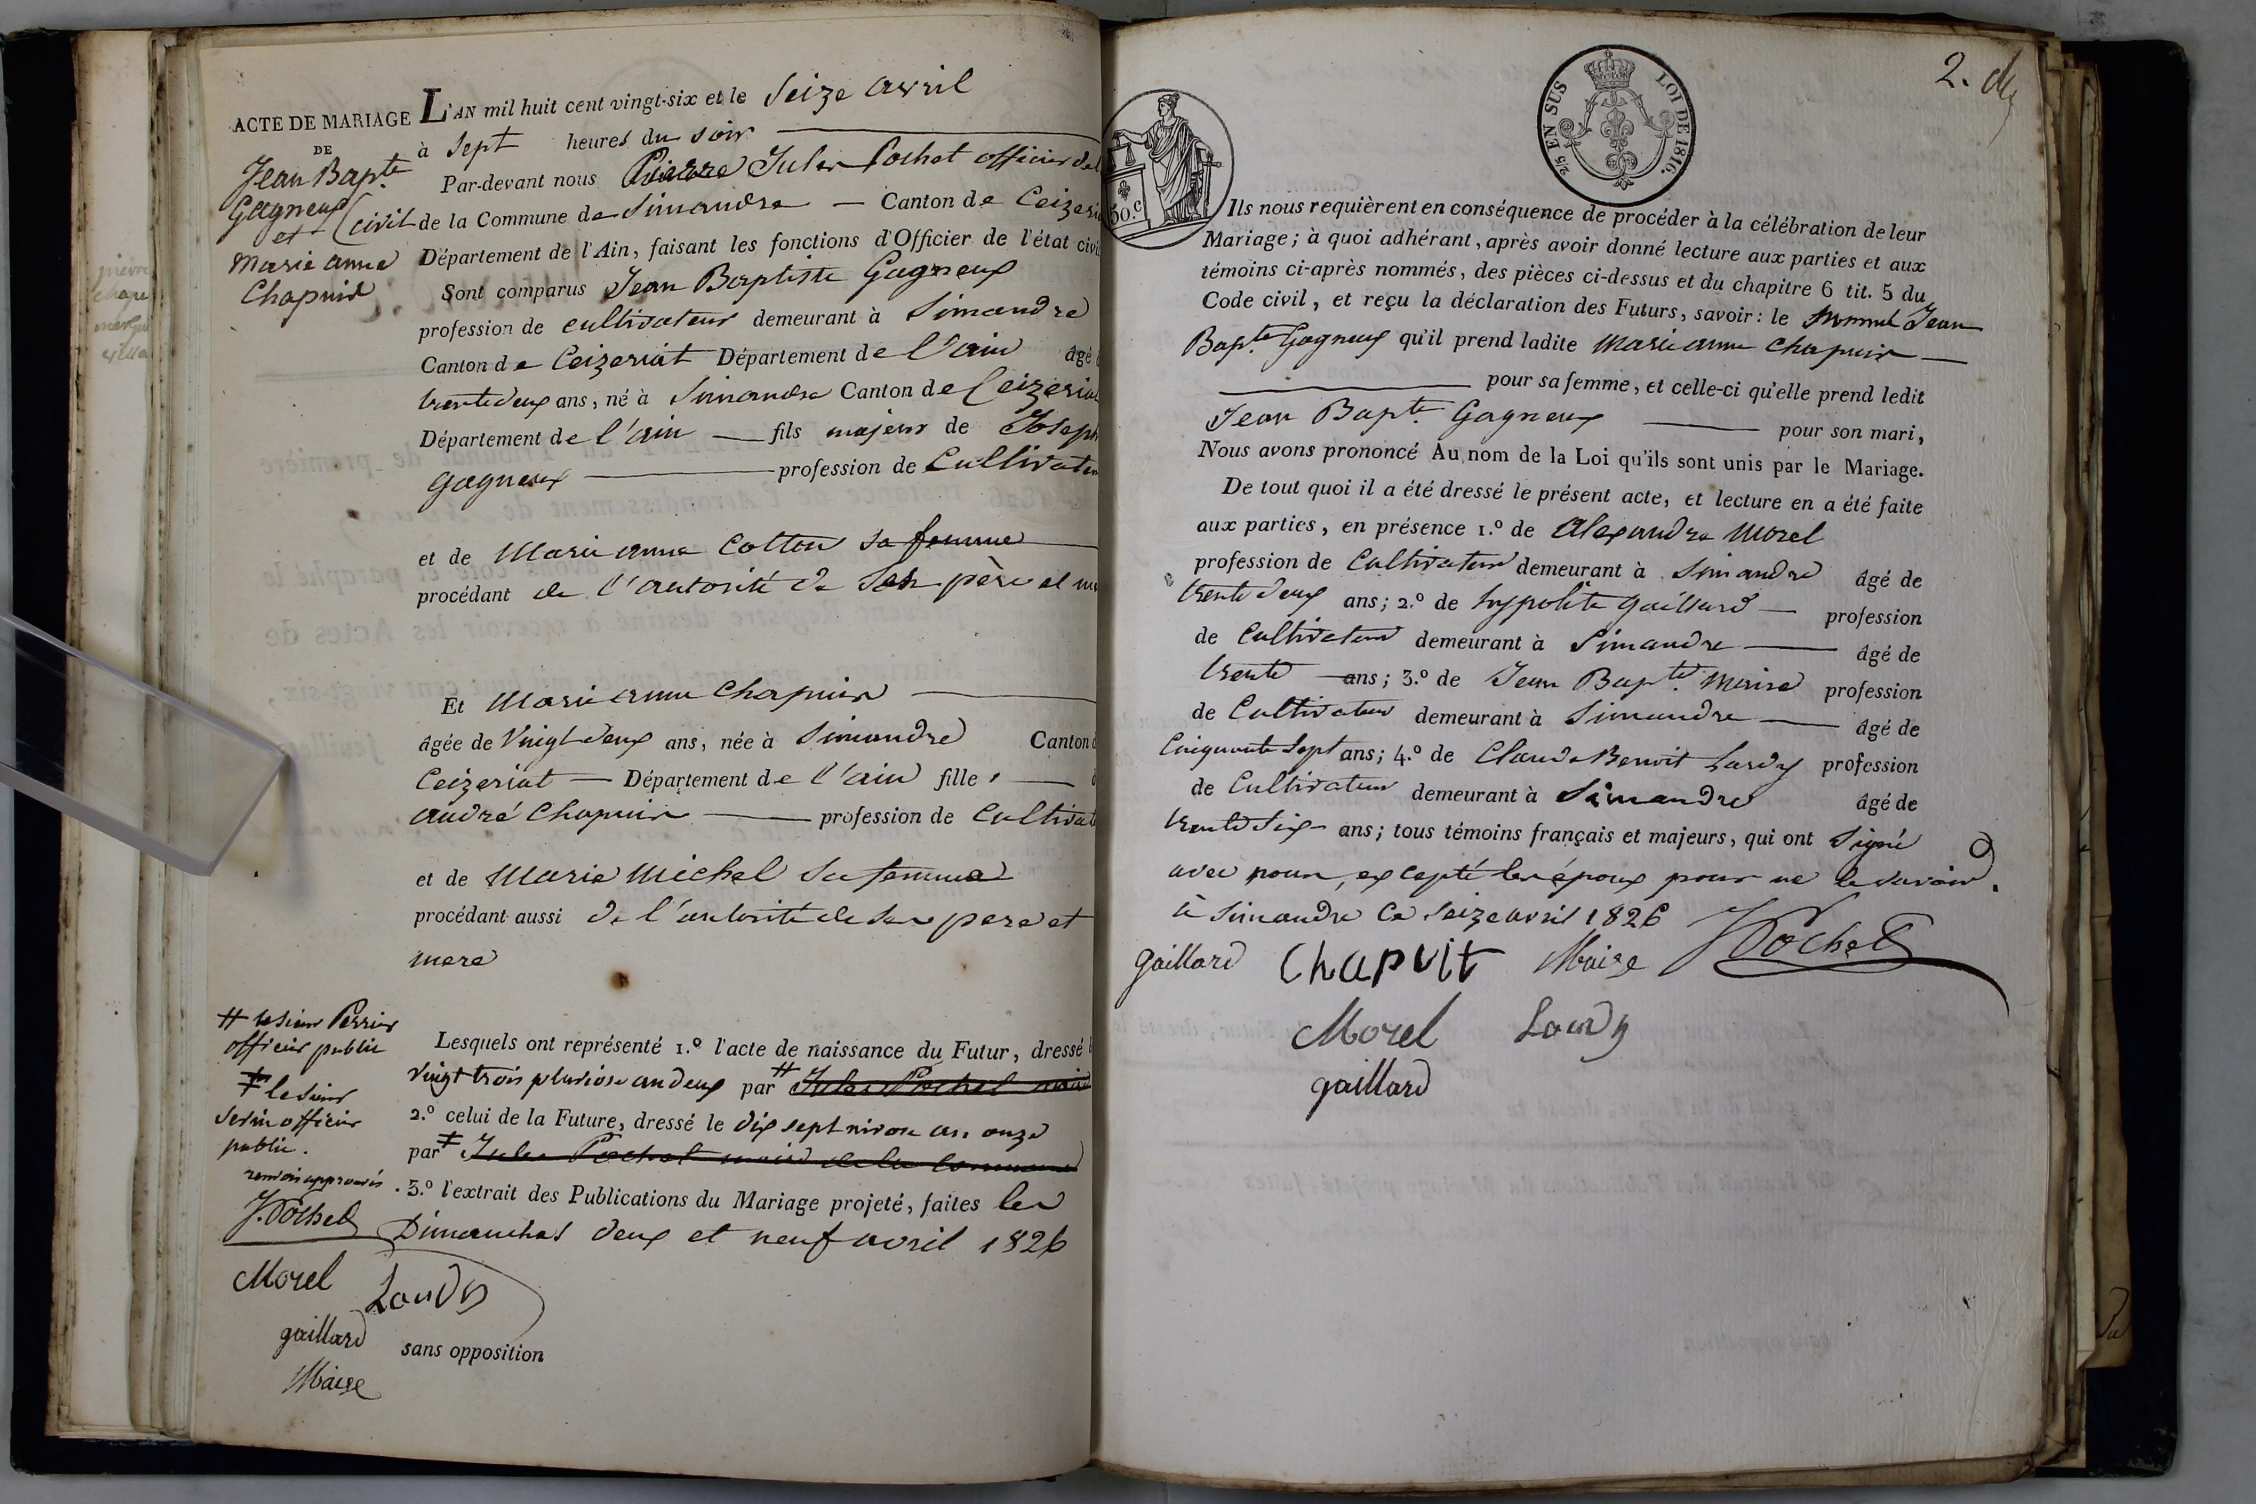 ACTE DE MARIAGE
DE
Jean Bapte
Gagneux
et
Marie anne
Chapuis
L'AN mil huit cent vingt-six et le seize avril
à sept heures du soir
Par-devant nous Pierre Jules Pochet officier de l
civil de la Commune de Simandre — Canton de Ceizeri
Département de l'Ain, faisant les fonctions d'Officier de l'état civi
Sont comparus Jean Baptiste Gagneux
profession de cultivateur demeurant à Simandre
Canton de Ceizeriat Département de l'ain âgé d
trente deux ans, né à Simandre Canton de Ceizeriat
Département de l'ain — fils majeur de Joseph
Gagneux — profession de Cultivateur
et de Marie anne Cotton sa femme
procédant de l'autorité de ses père et m
Et Marie anne Chapuis —
âgée de vingt deux ans, née à Simandre Canton d
Ceizeriat — Département de l'ain fille — d
andré Chapuis — profession de Cultivat
et de Marie Michel sa femme
procédant aussi de l'autorité de ses pere et
mere
Lesquels ont représenté 1.º l'acte de naissance du Futur, dressé l
vingt trois pluviose an deux par # Jules Pochet mair
2.º celui de la Future, dressé le dix sept nivose an onze
par ‡ Jules Pochet maire de la Commune
3.º l'extrait des Publications du Mariage projeté, faites les
Dimanches deux et neuf avril 1826
sans opposition
# le sieur Perrier
officier public
‡ le sieur
officier
public.
renvois approuvés
J. Pochet
Morel Landy
gaillard
Maire
2. de
2/5 EN SUS LOI DE 1816.
50.c
Ils nous requièrent en conséquence de procéder à la célébration de leur
Mariage; à quoi adhérant, après avoir donné lecture aux parties et aux
témoins ci-après nommés, des pièces ci-dessus et du chapitre 6 tit. 5 du
Code civil, et reçu la déclaration des Futurs, savoir: le Jean
Bapte Gagneux qu'il prend ladite Marie anne Chapuis —
— pour sa femme, et celle-ci qu'elle prend ledit
Jean Bapte Gagneux — pour son mari,
Nous avons prononcé Au nom de la Loi qu'ils sont unis par le Mariage.
De tout quoi il a été dressé le présent acte, et lecture en a été faite
aux parties, en présence 1.º de Alexandre Morel
profession de Cultivateur demeurant à Simandre âgé de
trente deux ans; 2.º de hypolite gaillard — profession
de Cultivateur demeurant à Simandre — âgé de
trente — ans; 3.º de Jean Bapte Maire profession
de Cultivateur demeurant à Simandre — âgé de
Cinquante sept ans; 4.º de Claude Benoit Landy profession
de Cultivateur demeurant à Simandre âgé de
trente six ans; tous témoins français et majeurs, qui ont signé
avec nous, excepté les époux pour ne le savoir.
à Simandre Ce seize avril 1826
gaillard Chapuit Maire J Pochet
Morel Landy
gaillard